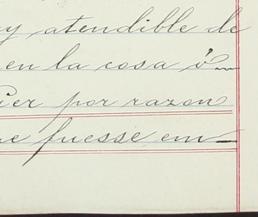 y atendible de
en la cosa ó
ier por razon
e fuesse em